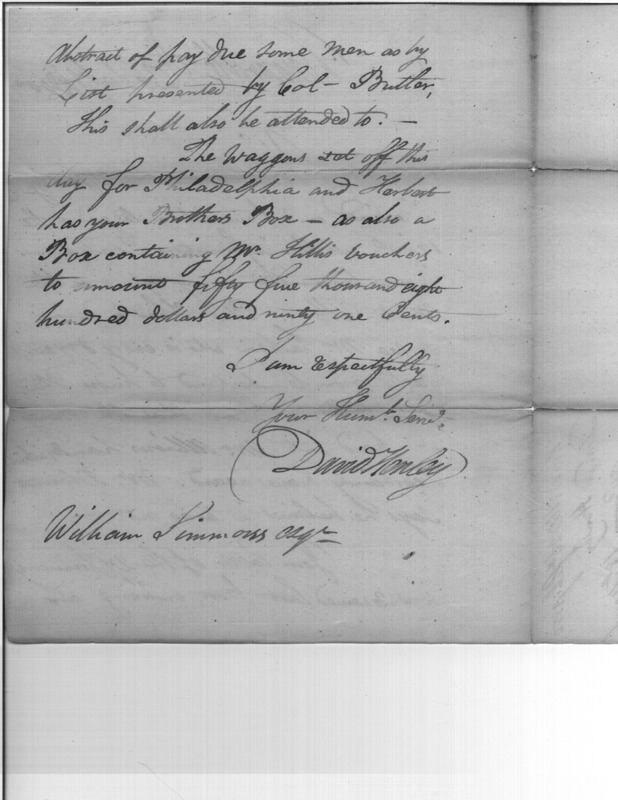 Abstract of pay due some men as by
List presented by Col- Butler,
This shall also be attended to. -
The Waggons set off this
day for Philadelphia and Herbert
has your Brothers Box - as also a
Box containing Mr. Hillis vouchers
to amount fifty five thousand eight
hundred dollars and ninty one Cents.
I am respectfully
Your Humb. Serv.
David Henley
William Simmons esqr